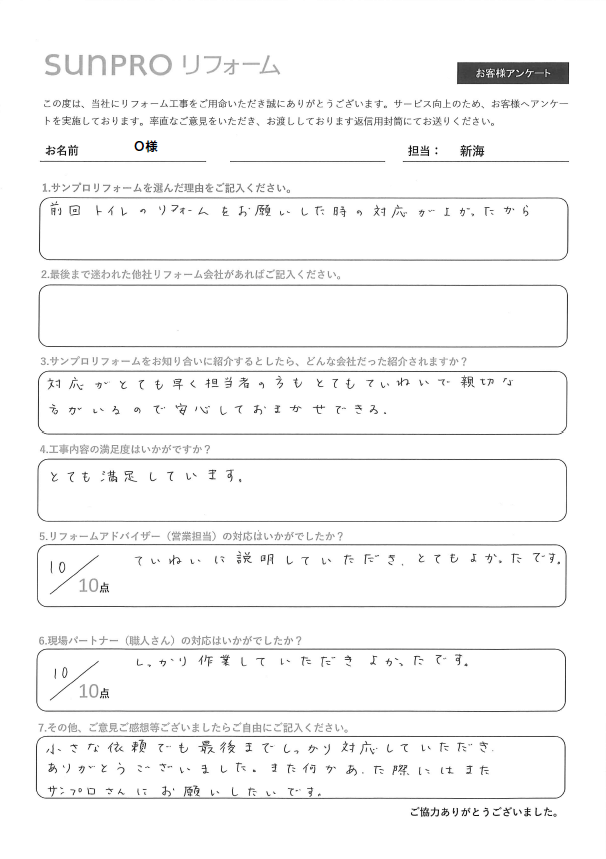 SUNPRO リフォーム
お客様アンケート
この度は、当社にリフォーム工事をご用命いただき誠にありがとうございます。サービス向上のため、お客様へアンケー
トを実施しております。率直なご意見をいただき、お渡ししております返信用封筒にてお送りください。
お名前 O様 担当： 新海
1.サンプロリフォームを選んだ理由をご記入ください。
前回トイレのリフォームをお願いした時の対応がよかったから
2.最後まで迷われた他社リフォーム会社があればご記入ください。
3.サンプロリフォームをお知り合いに紹介するとしたら、どんな会社だった紹介されますか？
対応がとても早く担当者の方もとてもていねいで親切な
方がいるので安心しておまかせできる.
4.工事内容の満足度はいかがですか？
とても満足しています。
5.リフォームアドバイザー（営業担当）の対応はいかがでしたか？
10/10点 ていねいに説明していただき、とてもよかったです。
6.現場パートナー（職人さん）の対応はいかがでしたか？
10/10点 しっかり作業していただきよかったです。
7.その他、ご意見ご感想等ございましたらご自由にご記入ください。
小さな依頼でも最後までしっかり対応していただき、
ありがとうございました。また何かあった際にはまた
サンプロさんにお願いしたいです。
ご協力ありがとうございました。